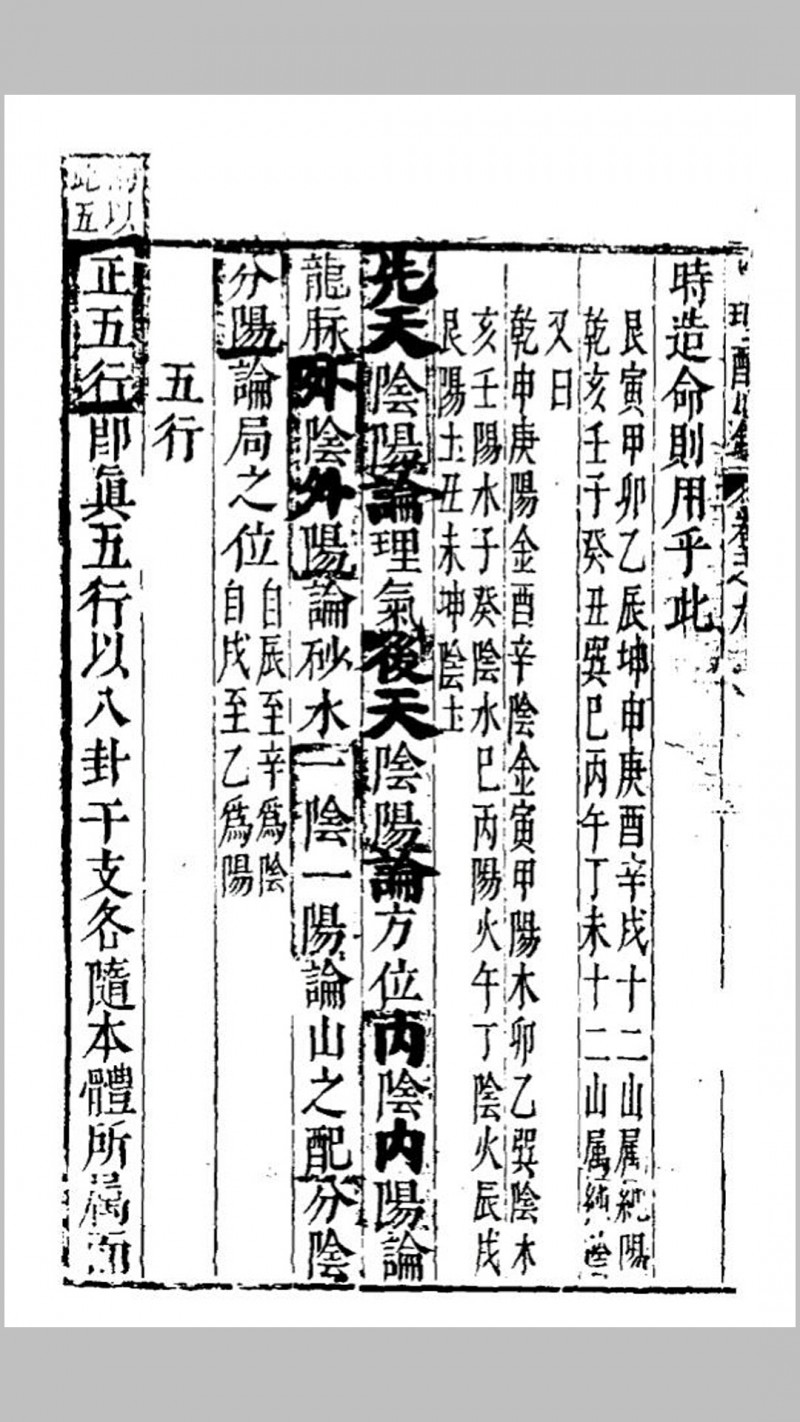 時造命則用乎此
艮寅甲卯乙辰坤申庚酉辛戌十二山屬純陽
乾亥壬子癸丑巽巳丙午丁未十二山屬純陰
又曰
乾申庚陽金酉辛陰金寅甲陽木卯乙巽陰木
亥壬陽水子癸陰水巳丙陽火午丁陰火辰戌
艮陽土丑未坤陰土
先天陰陽論理氣後天陰陽論方位內陰內陽論
龍脉外陰外陽論砂水一陰一陽論山之配分陰
分陽論局之位自辰至辛為陰
自戌至乙為陽
五行
正五行即眞五行以八卦干支各隨本體所屬而
以
此五